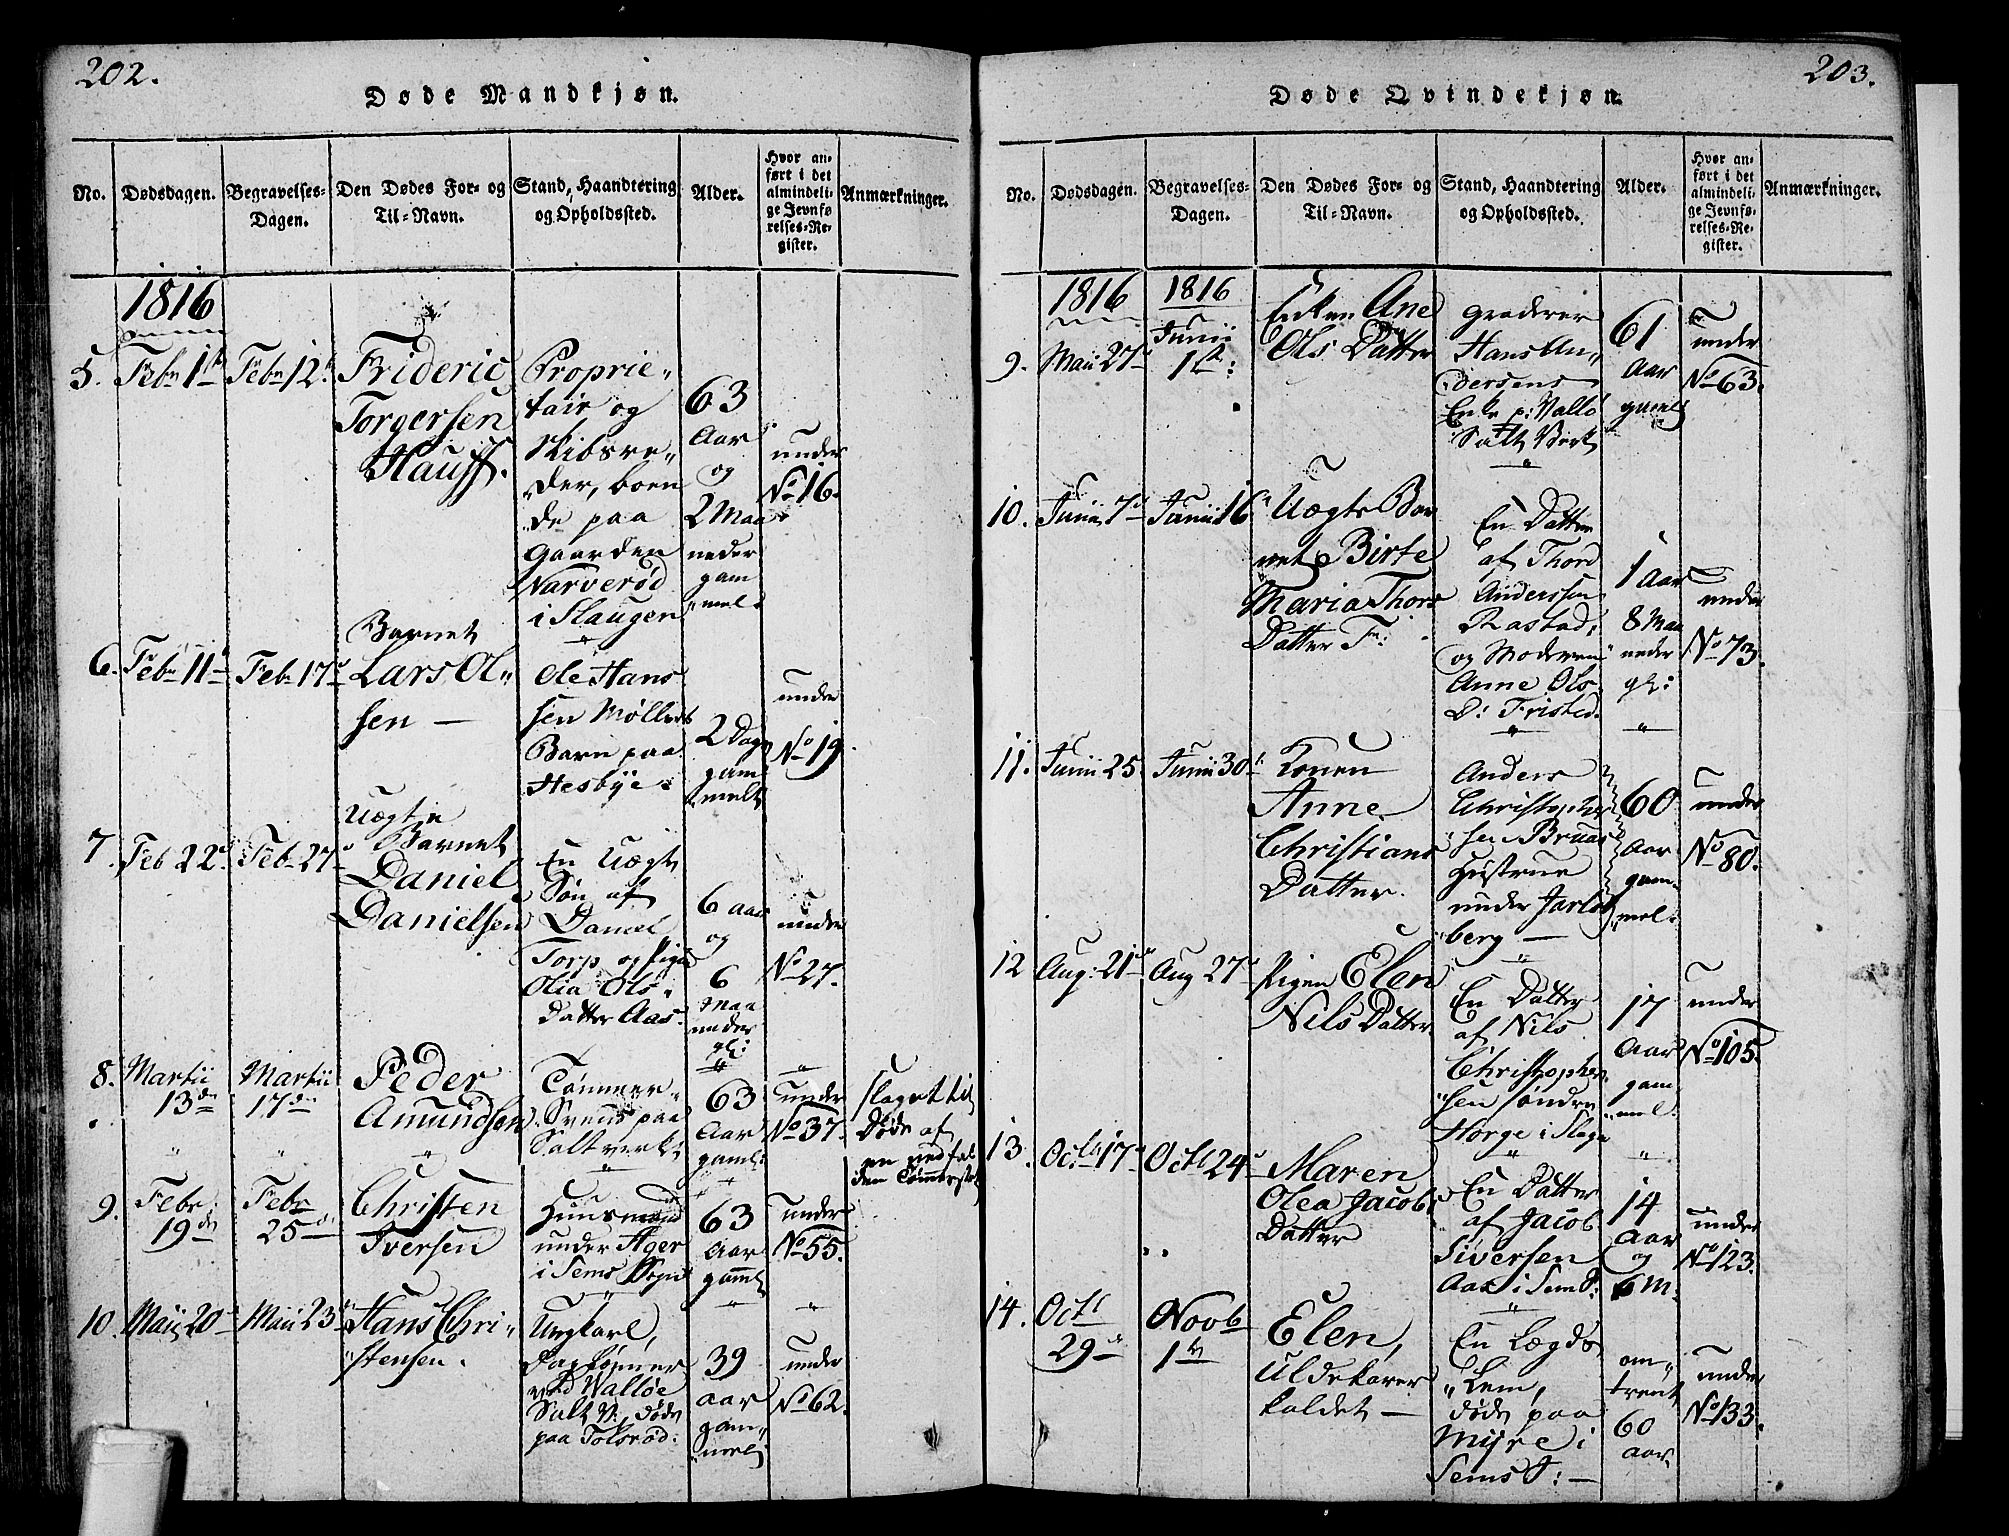 202.
Døde Mandkjøn.
No.
Dødsdagen.
Begravelses-
Dagen.
Den Dødes For- og
Til-Navn.
Stand, Haandtering
og Opholdssted.
Alder.
Hvor an-
ført i det
almindeli-
ge Jevnfø-
relses-Re-
gister.
Anmærkninger.
1816
5.
Febr 1ste
Febr 12te
Frideric
Torgersen
Hauff.
Proprie„
tair og
Skibsre„
„der, boen
„de paa
Gaarden
Narverød
i Slaugen
63
Aar
og
2 Maa
neder
gam
„mel.
under
No 16.
6.
Febr 11te
Febr 17de
Barnet
Lars Ol„
sen —
Ole Hans
sen Møllers
Barn paa
Hesbye.
2 Dage
gam
melt
under
No 19.
7.
Feb 22de
Feb 27de
Uægte
Barnet
Daniel
Danielsen
En Uægte
Søn af
Daniel
Torp og Pigen
Olia Ols„
Datter Aas.
6 aar
og
6
Maa
neder
gl:
under
No 27.
8.
Martii
13de
Martii
17de
Peder
Amundsen
Tømmer„
Svend paa
Saltverket
63
Aar
gaml:
under
No 37.
slaget til
Døde af
en nedfal
den Tømmerstok
9.
Febr
19de
Febr
25de
Christen
Iversen
Huusmand
under Ager
i Sems Sogn
63
Aar
gaml
under
No 55.
10.
Maii 20de
Maii 23de
Hans Chri„
„stensen.
Ungkarl,
Daglønner
ved Walløe
Salt V: døde
paa Tolsrød:
39
aar
gam„
„mel
under
No 62.
203.
Døde Qvindekjøn.
No.
Dødsdagen.
Begravelses-
Dagen.
Den Dødes For- og
Til-Navn.
Stand, Haandtering
og Opholdssted.
Alder.
Hvor an-
ført i det
almindeli-
ge Jevnfø-
relses-Re-
gister.
Anmærkninger.
1816
1816
9.
Maii 27de
Junii
1ste:
Enken Ane
Ols Datter
Graderer
Hans An„
dersens
Enke p: Vallø
Salt Verk
61
Aar
gamel
under
No 63.
10.
Junii 7de
Junii 16de
Uægte Bar
net Birte
Maria Thors
Datter F:
En Datter
af Thord
Anderssen
Rastad,
og Moderen
Anne Ols„
D: Fristed.
1 Aar
8 Maa
neder
gl:
under
No 73.
11.
Junii 25.
Junii 30te
Konen
Anne
Christians
Datter.
Anders
Christopher
sen Bruas
Hustrue
under Jarls
berg —
60
Aar
gam„
mel.
under
No 80.
12
Aug: 21de
Aug 27de
Pigen Elen
Nils Datter
En Datter
af Nils
Christopher„
sen Søndre
Horge i Slagn
17
Aar
gam„
mel:
under
No 105.
13.
Octb 17de
Octb 24de
Maren
Olea Jacobs
Datter
En Datter
af Jacob
Siversen
Aas i Sem S:
14
Aar
og
6 M.
under
No 123.
14.
Octb
29de
Novb
1ste
Elen,
Uldekarer
kaldet —
En Lægds
„Lem,
døde paa
Myre i
Sems S: —
om„
„trent
60
aar
under
No 133.